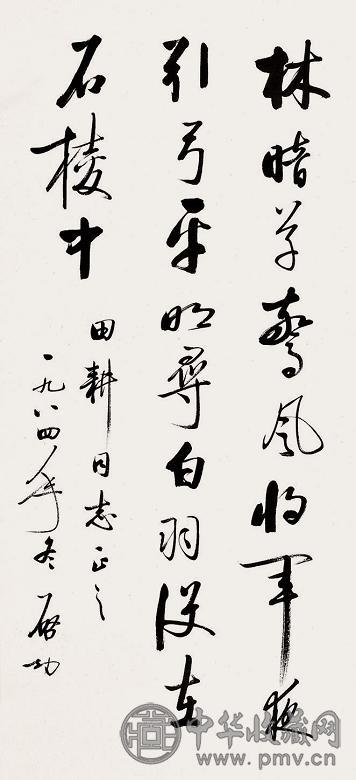 林暗草驚風将軍夜
引弓平明尋白羽没在
石棱中
田耕同志正之
一九八四年冬 啓功
中华收藏网
www.pmv.cn